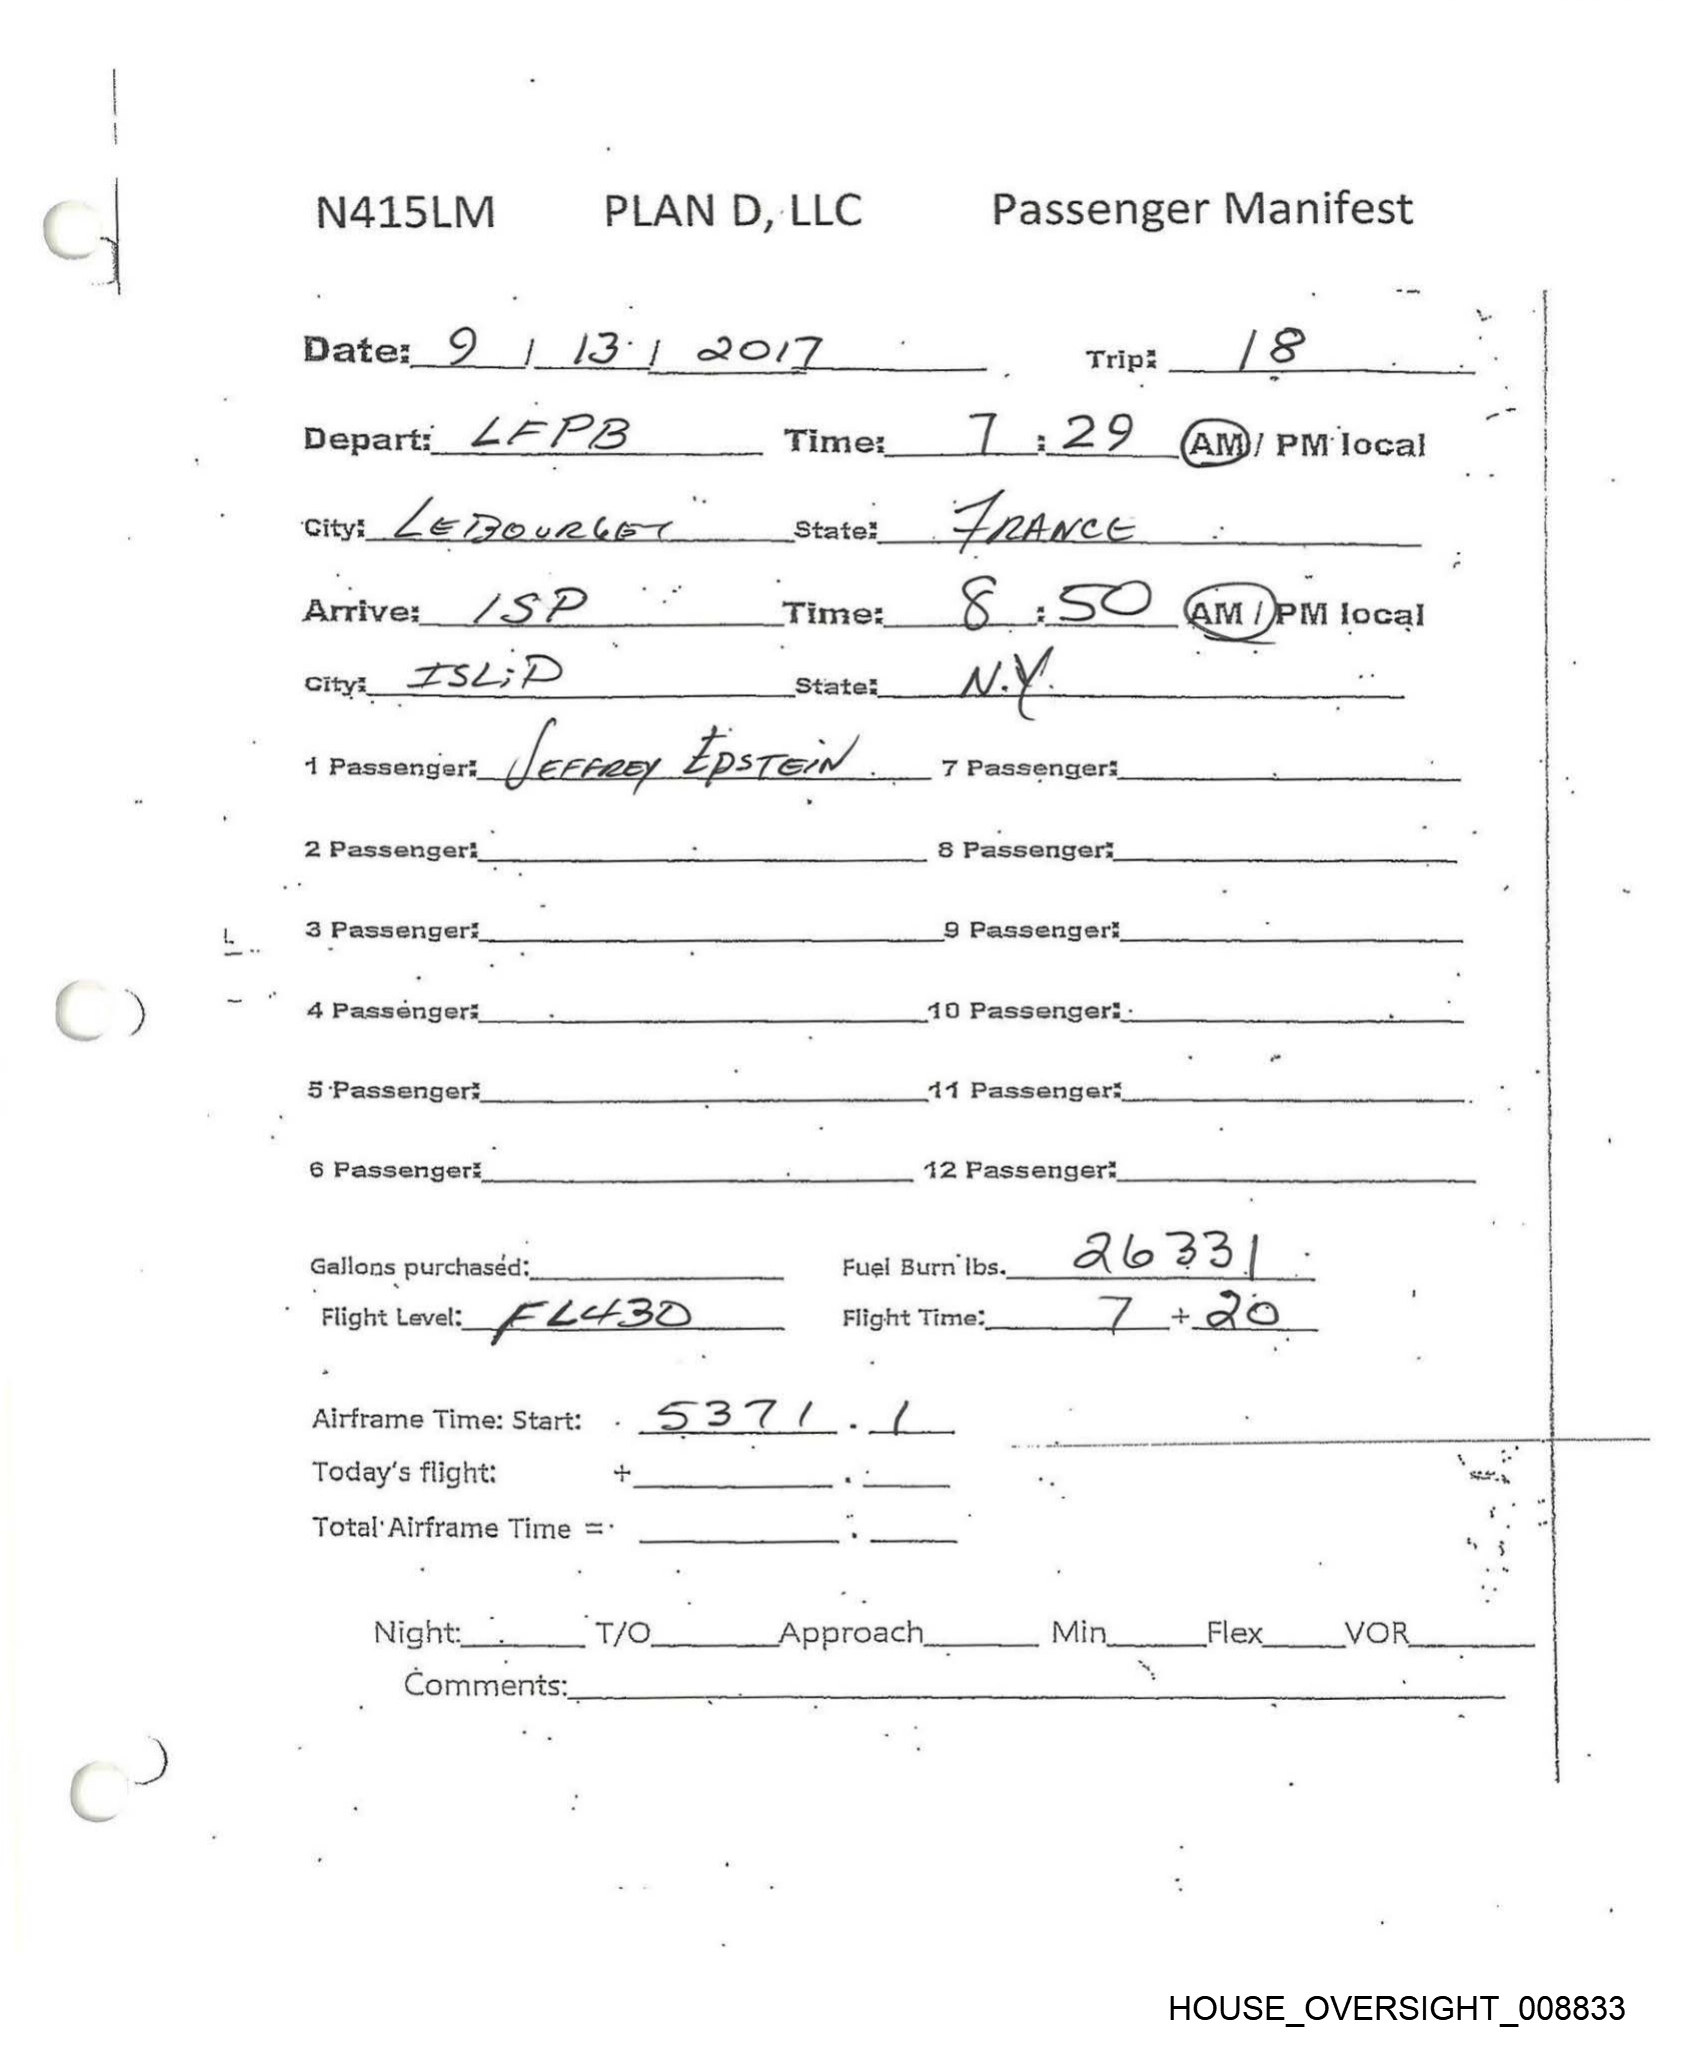 N415LM PLAN D, LLC Passenger Manifest
Date: 9 / 13 / 2017 Trip: 18
Depart: LFPB Time: 7 : 29 AM / PM local
City: LEBOURGET State: FRANCE
Arrive: ISP Time: 8 : 50 AM / PM local
City: ISLiP State: N.Y.
1 Passenger: JEFFREY EPSTEIN 7 Passenger:
2 Passenger: 8 Passenger:
3 Passenger: 9 Passenger:
4 Passenger: 10 Passenger:
5 Passenger: 11 Passenger:
6 Passenger: 12 Passenger:
Gallons purchased: Fuel Burn lbs. 26331
Flight Level: FL430 Flight Time: 7 + 20
Airframe Time: Start: 5371 . 1
Today's flight: + .
Total Airframe Time = :
Night: T/O Approach Min Flex VOR
Comments:
HOUSE_OVERSIGHT_008833